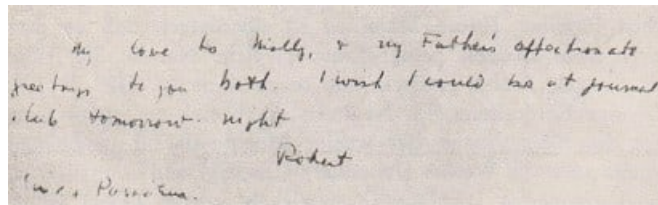 My love to Molly, & my Father's affectionate
greetings to you both. I wish I could be at journal
club tomorrow night
Robert
Pasadena.